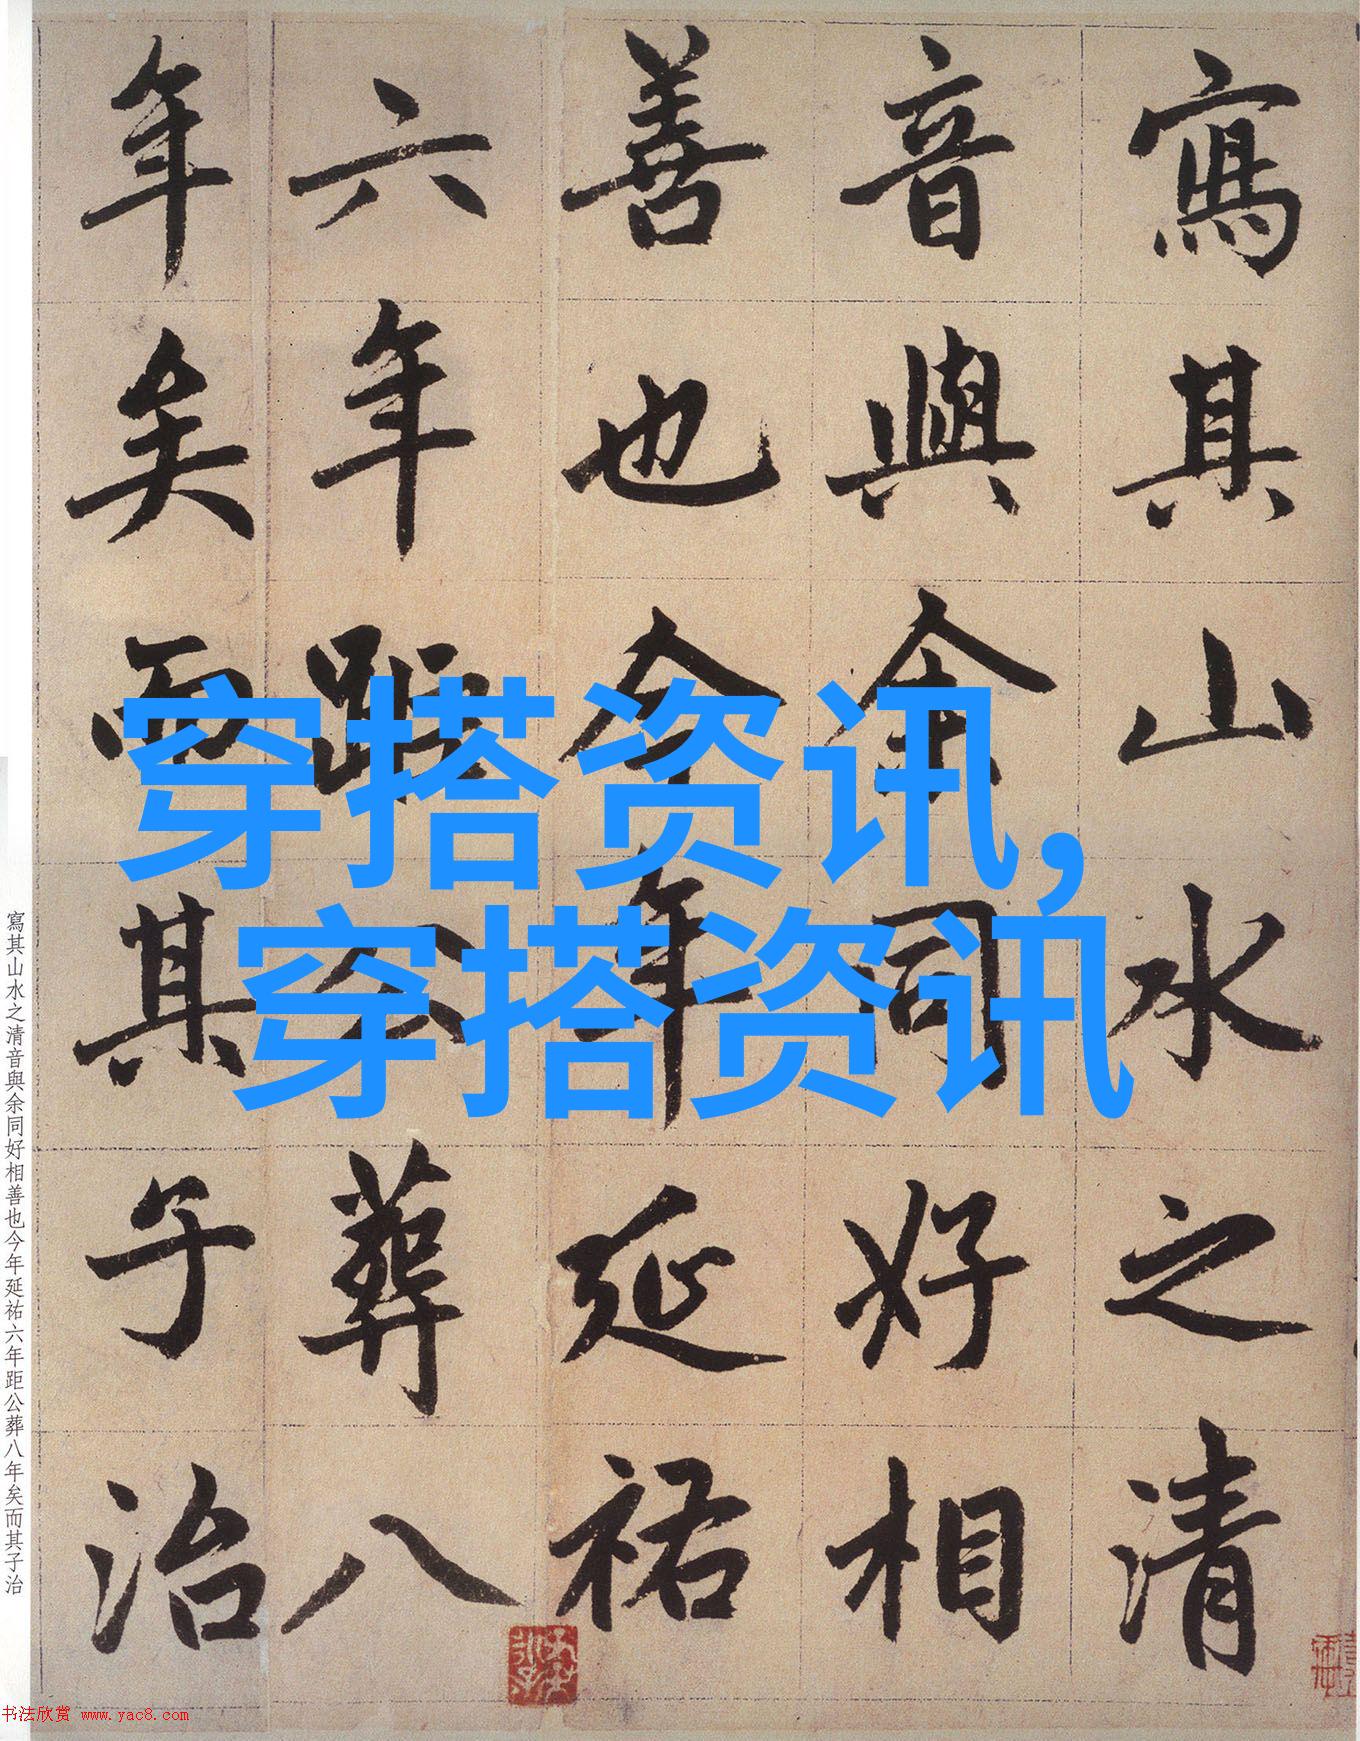 寫其山水之清
音與余同好相
善也今年延祐
六年距公葬八
年矣而其子治
穿搭资讯,
穿搭资讯
寫其山水之清音與余同好相善也今年延祐六年距公葬八年矣而其子治
书法欣赏 www.yac8.com